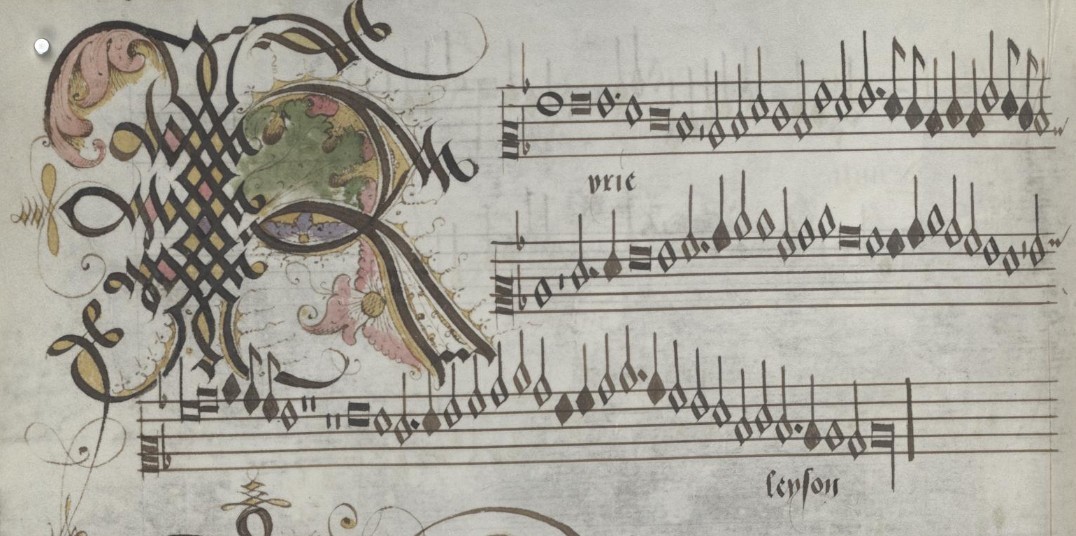 Kyrie
leyson